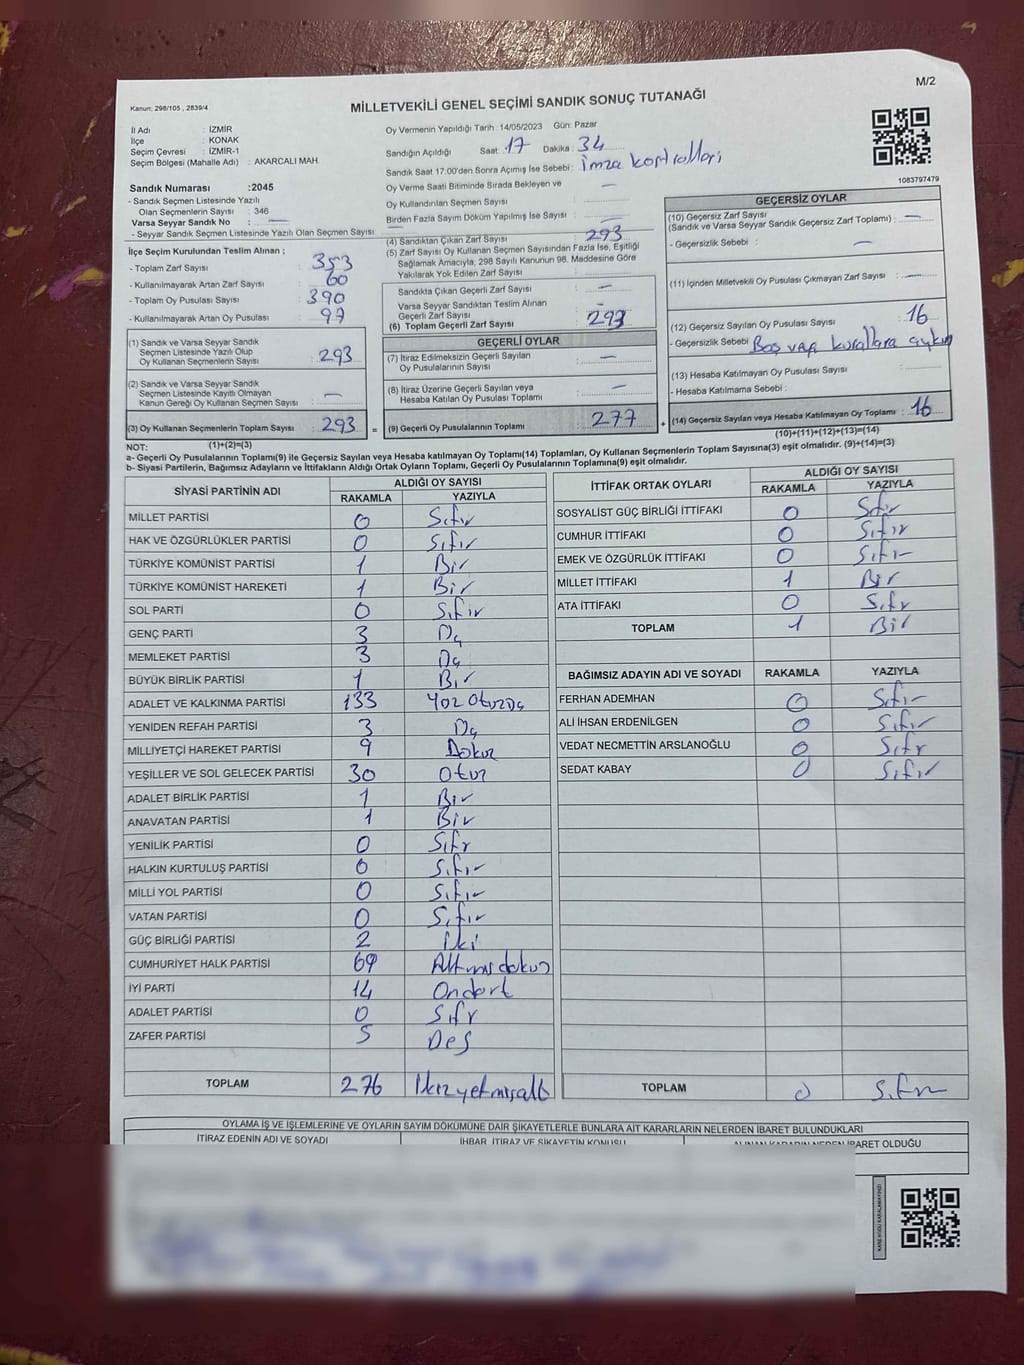 M/2
Kanun; 298/105 , 2839/4
MİLLETVEKİLİ GENEL SEÇİMİ SANDIK SONUÇ TUTANAĞI
İl Adı : İZMİR
İlçe : KONAK
Seçim Çevresi : İZMİR-1
Seçim Bölgesi (Mahalle Adı) : AKARCALI MAH.
Sandık Numarası :2045
- Sandık Seçmen Listesinde Yazılı
Olan Seçmenlerin Sayısı : 346
Varsa Seyyar Sandık No : —
- Seyyar Sandık Seçmen Listesinde Yazılı Olan Seçmen Sayısı —
Oy Vermenin Yapıldığı Tarih :14/05/2023 Gün: Pazar
Sandığın Açıldığı Saat: 17 Dakika: 34
Sandık Saat 17:00'den Sonra Açımış İse Sebebi : İmza kontrolleri
Oy Verme Saati Bitiminde Sırada Bekleyen ve —
Oy Kullandırılan Seçmen Sayısı :
Birden Fazla Sayım Döküm Yapılmış İse Sayısı : —
(4) Sandıktan Çıkan Zarf Sayısı : 293
(5) Zarf Sayısı Oy Kullanan Seçmen Sayısından Fazla İse, Eşitliği
Sağlamak Amacıyla, 298 Sayılı Kanunun 98. Maddesine Göre
Yakılarak Yok Edilen Zarf Sayısı :
İlçe Seçim Kurulundan Teslim Alınan ;
- Toplam Zarf Sayısı : 353
- Kullanılmayarak Artan Zarf Sayısı : 60
- Toplam Oy Pusulası Sayısı : 390
- Kullanılmayarak Artan Oy Pusulası : 97
(1) Sandık ve Varsa Seyyar Sandık
Seçmen Listesinde Yazılı Olup
Oy Kullanan Seçmenlerin Sayısı : 293
(2) Sandık ve Varsa Seyyar Sandık
Seçmen Listesinde Kayıtlı Olmayan
Kanun Gereği Oy Kullanan Seçmen Sayısı : —
(3) Oy Kullanan Seçmenlerin Toplam Sayısı : 293
(1)+(2)=(3)
Sandıkta Çıkan Geçerli Zarf Sayısı : —
Varsa Seyyar Sandıktan Teslim Alınan
Geçerli Zarf Sayısı : —
(6) Toplam Geçerli Zarf Sayısı : 293
GEÇERLİ OYLAR
(7) İtiraz Edilmeksizin Geçerli Sayılan
Oy Pusulalarının Sayısı : —
(8) İtiraz Üzerine Geçerli Sayılan veya
Hesaba Katılan Oy Pusulası Toplamı : —
= (9) Geçerli Oy Pusulalarının Toplamı : 277
1083797479
GEÇERSİZ OYLAR
(10) Geçersiz Zarf Sayısı : —
(Sandık ve Varsa Seyyar Sandık Geçersiz Zarf Toplamı)
- Geçersizlik Sebebi : —
(11) İçinden Milletvekili Oy Pusulası Çıkmayan Zarf Sayısı : —
(12) Geçersiz Sayılan Oy Pusulası Sayısı : 16
- Geçersizlik Sebebi Boş veya kurallara aykırı
(13) Hesaba Katılmayan Oy Pusulası Sayısı :
- Hesaba Katılmama Sebebi :
+ (14) Geçersiz Sayılan veya Hesaba Katılmayan Oy Toplamı : 16
(10)+(11)+(12)+(13)=(14)
NOT:
a- Geçerli Oy Pusulalarının Toplamı(9) ile Geçersiz Sayılan veya Hesaba katılmayan Oy Toplamı(14) Toplamları, Oy Kullanan Seçmenlerin Toplam Sayısına(3) eşit olmalıdır. (9)+(14)=(3)
b- Siyasi Partilerin, Bağımsız Adayların ve İttifakların Aldığı Ortak Oyların Toplamı, Geçerli Oy Pusulalarının Toplamına(9) eşit olmalıdır.
SİYASİ PARTİNİN ADI ALDIĞI OY SAYISI
RAKAMLA YAZIYLA
MİLLET PARTİSİ 0 Sıfır
HAK VE ÖZGÜRLÜKLER PARTİSİ 0 Sıfır
TÜRKİYE KOMÜNİST PARTİSİ 1 Bir
TÜRKİYE KOMÜNİST HAREKETİ 1 Bir
SOL PARTİ 0 Sıfır
GENÇ PARTİ 3 Üç
MEMLEKET PARTİSİ 3 Üç
BÜYÜK BİRLİK PARTİSİ 1 Bir
ADALET VE KALKINMA PARTİSİ 133 Yüz Otuzüç
YENİDEN REFAH PARTİSİ 3 Üç
MİLLİYETÇİ HAREKET PARTİSİ 9 Dokuz
YEŞİLLER VE SOL GELECEK PARTİSİ 30 Otuz
ADALET BİRLİK PARTİSİ 1 Bir
ANAVATAN PARTİSİ 1 Bir
YENİLİK PARTİSİ 0 Sıfır
HALKIN KURTULUŞ PARTİSİ 0 Sıfır
MİLLİ YOL PARTİSİ 0 Sıfır
VATAN PARTİSİ 0 Sıfır
GÜÇ BİRLİĞİ PARTİSİ 2 İki
CUMHURİYET HALK PARTİSİ 69 Altmışdokuz
İYİ PARTİ 14 Ondört
ADALET PARTİSİ 0 Sıfır
ZAFER PARTİSİ 5 Beş
TOPLAM 276 İkiyüzyetmişaltı
İTTİFAK ORTAK OYLARI ALDIĞI OY SAYISI
RAKAMLA YAZIYLA
SOSYALİST GÜÇ BİRLİĞİ İTTİFAKI 0 Sıfır
CUMHUR İTTİFAKI 0 Sıfır
EMEK VE ÖZGÜRLÜK İTTİFAKI 0 Sıfır
MİLLET İTTİFAKI 1 Bir
ATA İTTİFAKI 0 Sıfır
TOPLAM 1 Bir
BAĞIMSIZ ADAYIN ADI VE SOYADI RAKAMLA YAZIYLA
FERHAN ADEMHAN 0 Sıfır
ALİ İHSAN ERDENİLGEN 0 Sıfır
VEDAT NECMETTİN ARSLANOĞLU 0 Sıfır
SEDAT KABAY 0 Sıfır
TOPLAM 0 Sıfır
OYLAMA İŞ VE İŞLEMLERİNE VE OYLARIN SAYIM DÖKÜMÜNE DAİR ŞİKAYETLERLE BUNLARA AİT KARARLARIN NELERDEN İBARET BULUNDUKLARI
İTİRAZ EDENİN ADI VE SOYADI İHBAR, İTİRAZ VE ŞİKAYETİN KONUSU ALINAN KARARIN NEDEN İBARET OLDUĞU
KARE KODU KARALAMAYINIZ!